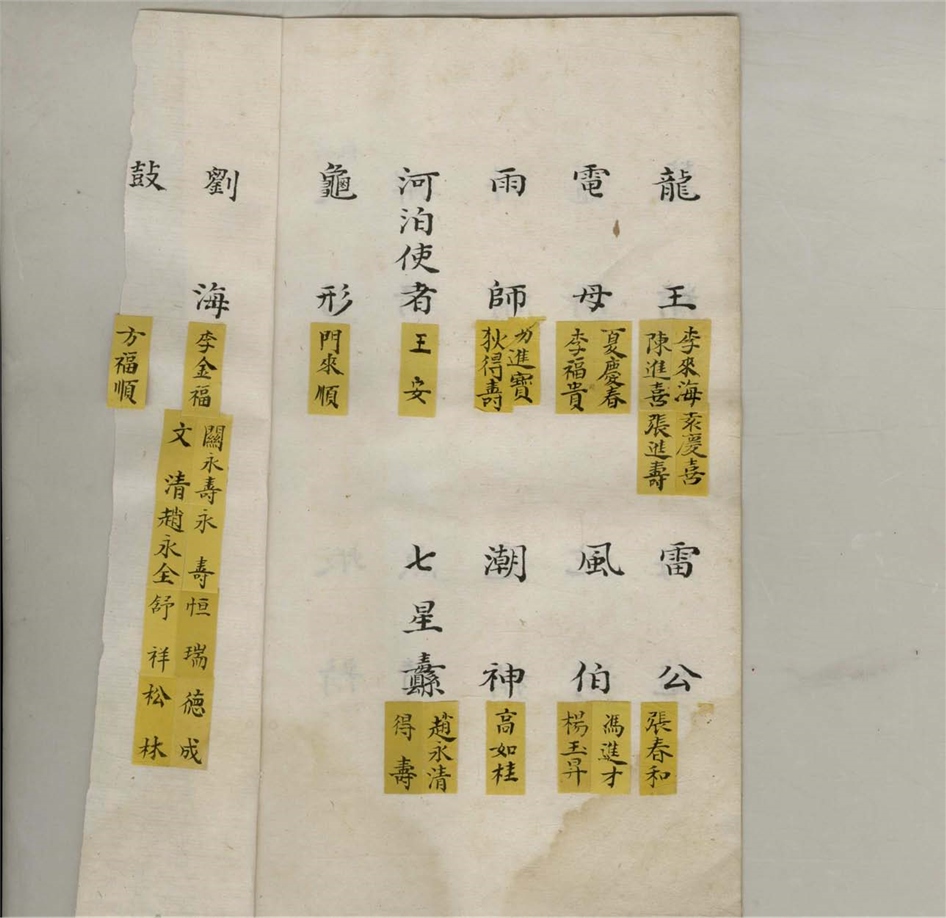 龍王
李來海
陳進喜
袁慶喜
張進壽
雷公
張春和
電母
夏慶春
李福貴
風伯
馮進才
楊玉昇
雨師
方進寶
狄得壽
潮神
高如桂
河泊使者
王安
七星纛
趙永清
得壽
龜形
門來順
劉海
李金福
關永壽
永壽
恒瑞
德成
文清
趙永全
舒祥
松林
鼓
方福順